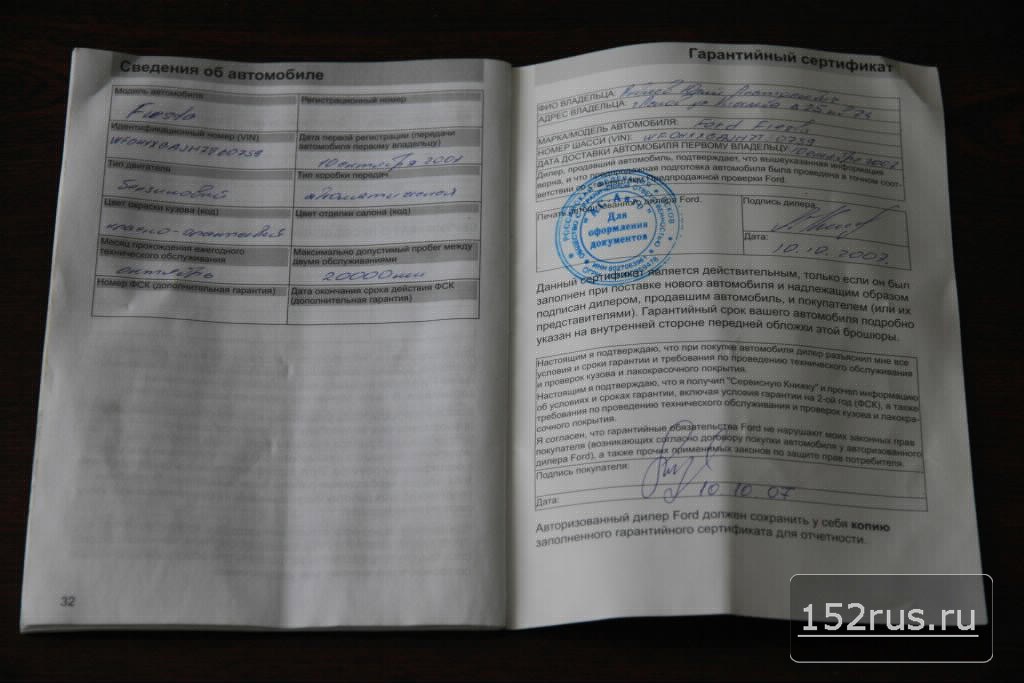 Сведения об автомобиле
Модель автомобиля
Fiesta
Регистрационный номер
Идентификационный номер (VIN)
Дата первой регистрации (передачи
автомобиля первому владельцу)
10 октября 2007
Тип двигателя
Бензиновый
Тип коробки передач
автоматический
Цвет окраски кузова (код)
красно-оранжевый
Цвет отделки салона (код)
Месяц прохождения ежегодного
технического обслуживания
октябрь
Максимально допустимый пробег между
двумя обслуживаниями
20000 км
Номер ФСК (дополнительная гарантия)
Дата окончания срока действия ФСК
(дополнительная гарантия)
32
Гарантийный сертификат
ФИО ВЛАДЕЛЬЦА:
АДРЕС ВЛАДЕЛЬЦА:
МАРКА/МОДЕЛЬ АВТОМОБИЛЯ: Ford Fiesta
НОМЕР ШАССИ (VIN):
ДАТА ДОСТАВКИ АВТОМОБИЛЯ ПЕРВОМУ ВЛАДЕЛЬЦУ 10 октября 2007
Дилер, продавший автомобиль, подтверждает, что вышеуказанная информация
верна, и что предпродажная подготовка автомобиля была проведена в точном соот-
ветствии со Предпродажной проверки Ford.
Печать авторизованного дилера Ford.
Для
оформления
документов
Подпись дилера
Дата:
10.10.2007
Данный сертификат является действительным, только если он был
заполнен при поставке нового автомобиля и надлежащим образом
подписан дилером, продавшим автомобиль, и покупателем (или их
представителями). Гарантийный срок вашего автомобиля подробно
указан на внутренней стороне передней обложки этой брошюры.
Настоящим я подтверждаю, что при покупке автомобиля дилер разъяснил мне все
условия и сроки гарантии и требования по проведению технического обслуживания
и проверок кузова и лакокрасочного покрытия.
Настоящим я подтверждаю, что я получил "Сервисную Книжку" и прочел информацию
об условиях и сроках гарантии, включая условия гарантии на 2-ой год (ФСК), а также
требования по проведению технического обслуживания и проверок кузова и лакокра-
сочного покрытия.
Я согласен, что гарантийные обязательства Ford не нарушают моих законных прав
покупателя (возникающих согласно договору покупки автомобиля у авторизованного
дилера Ford), а также прочих применимых законов по защите прав потребителя.
Подпись покупателя:
Дата:
10 10 07
Авторизованный дилер Ford должен сохранить у себя копию
заполненного гарантийного сертификата для отчетности.
152rus.ru